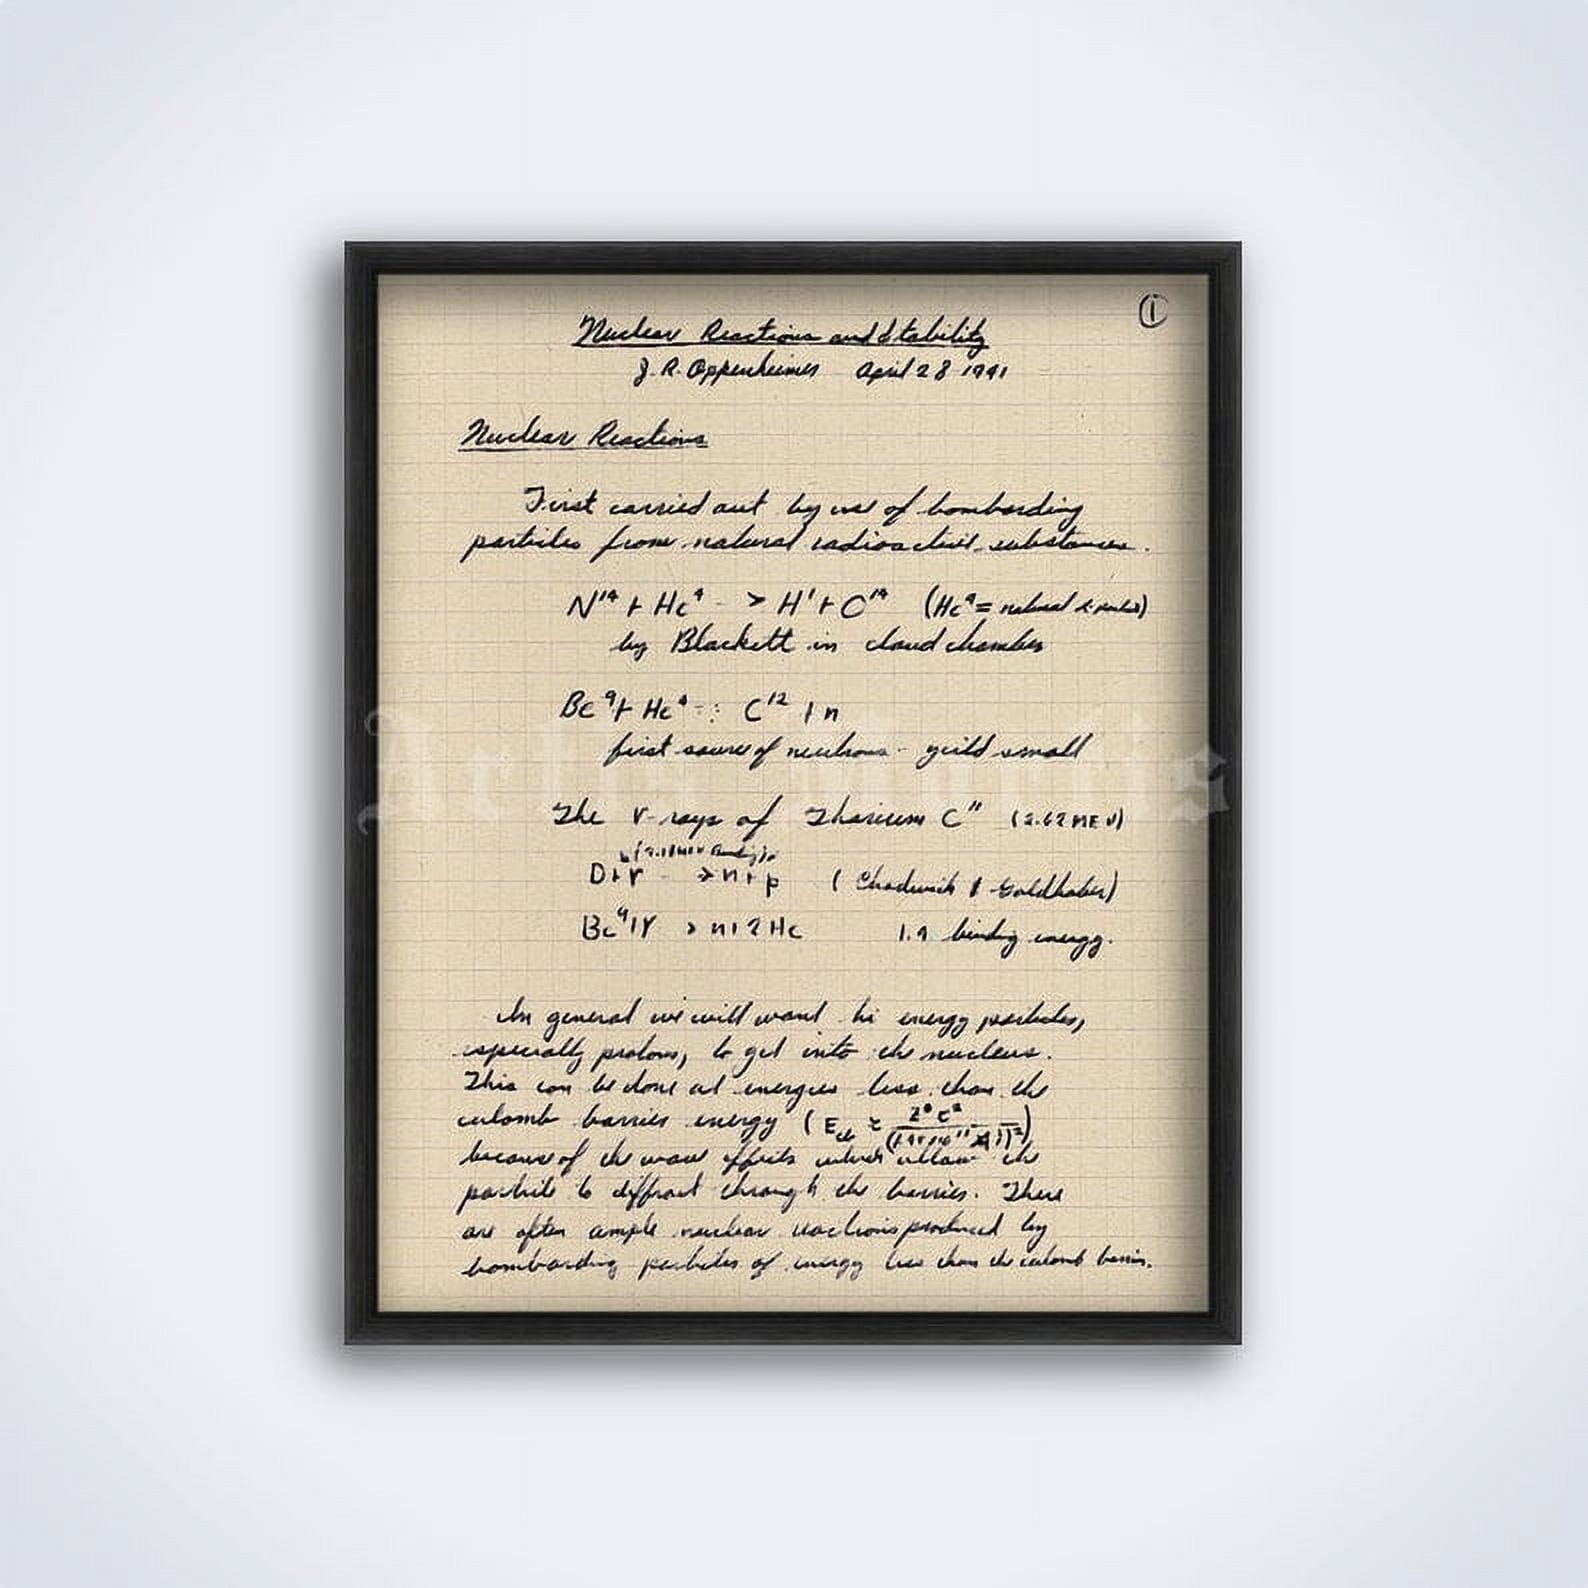 ①
Nuclear Reactions and Stability
J. R. Oppenheimer April 28 1941
Nuclear Reactions
First carried out by use of bombarding
particles from natural radioactive substances.
N¹⁴ + He⁴ -> H¹ + O¹⁴ (He⁴ = natural α-particles)
by Blackett in cloud chamber
Be⁹ + He⁴ -> C¹² + n
first source of neutrons - yield small
The γ-rays of Thorium C" (2.62 MEV)
D + γ -> n + p (Chadwick & Goldhaber)
Be⁹ + γ > n + 2 He 1.9 binding energy.
In general we will want hi energy particles,
especially protons, to get into the nucleus.
This can be done at energies less than the
culomb barrier energy (
because of the wave effects which allow the
particle to diffract through the barrier. There
are often ample nuclear reactions produced by
bombarding particles of energy less than the culomb barrier.
Arthur Mortis